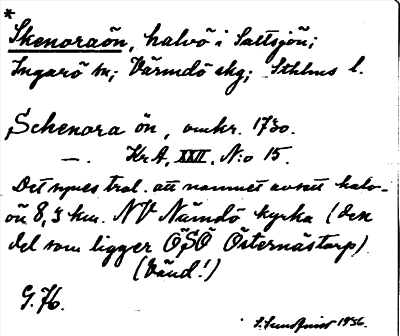 *
Skenoraön, halvö i Saltsjön;
Ingarö sn; Värmdö skg; Sthlms l.
Schenora ön, omkr. 1730.
—. KrA, XXII, N:o 15.
Det synes trol. att namnet avsett halv-
ön 8,3 km. NV Nämdö kyrka (den
del som ligger ÖSÖ Östernästorp)
(Vänd!)
G. 76.
S. Sundqvist 1936.